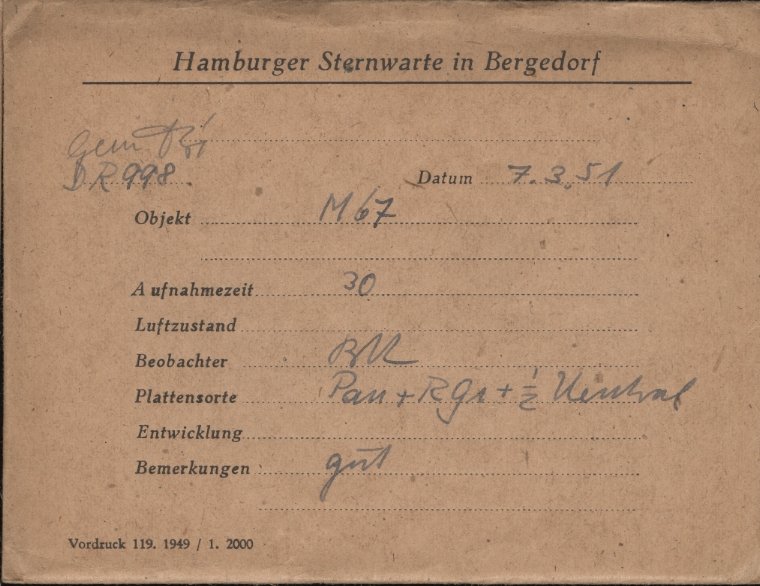 Hamburger Sternwarte in Bergedorf
DR 998
Datum 7.3.51
Objekt M 67
Aufnahmezeit 30
Luftzustand
Beobachter
Plattensorte Pan + RG1 + ½ Neutral
Entwicklung
Bemerkungen gut
Vordruck 119. 1949 / 1. 2000